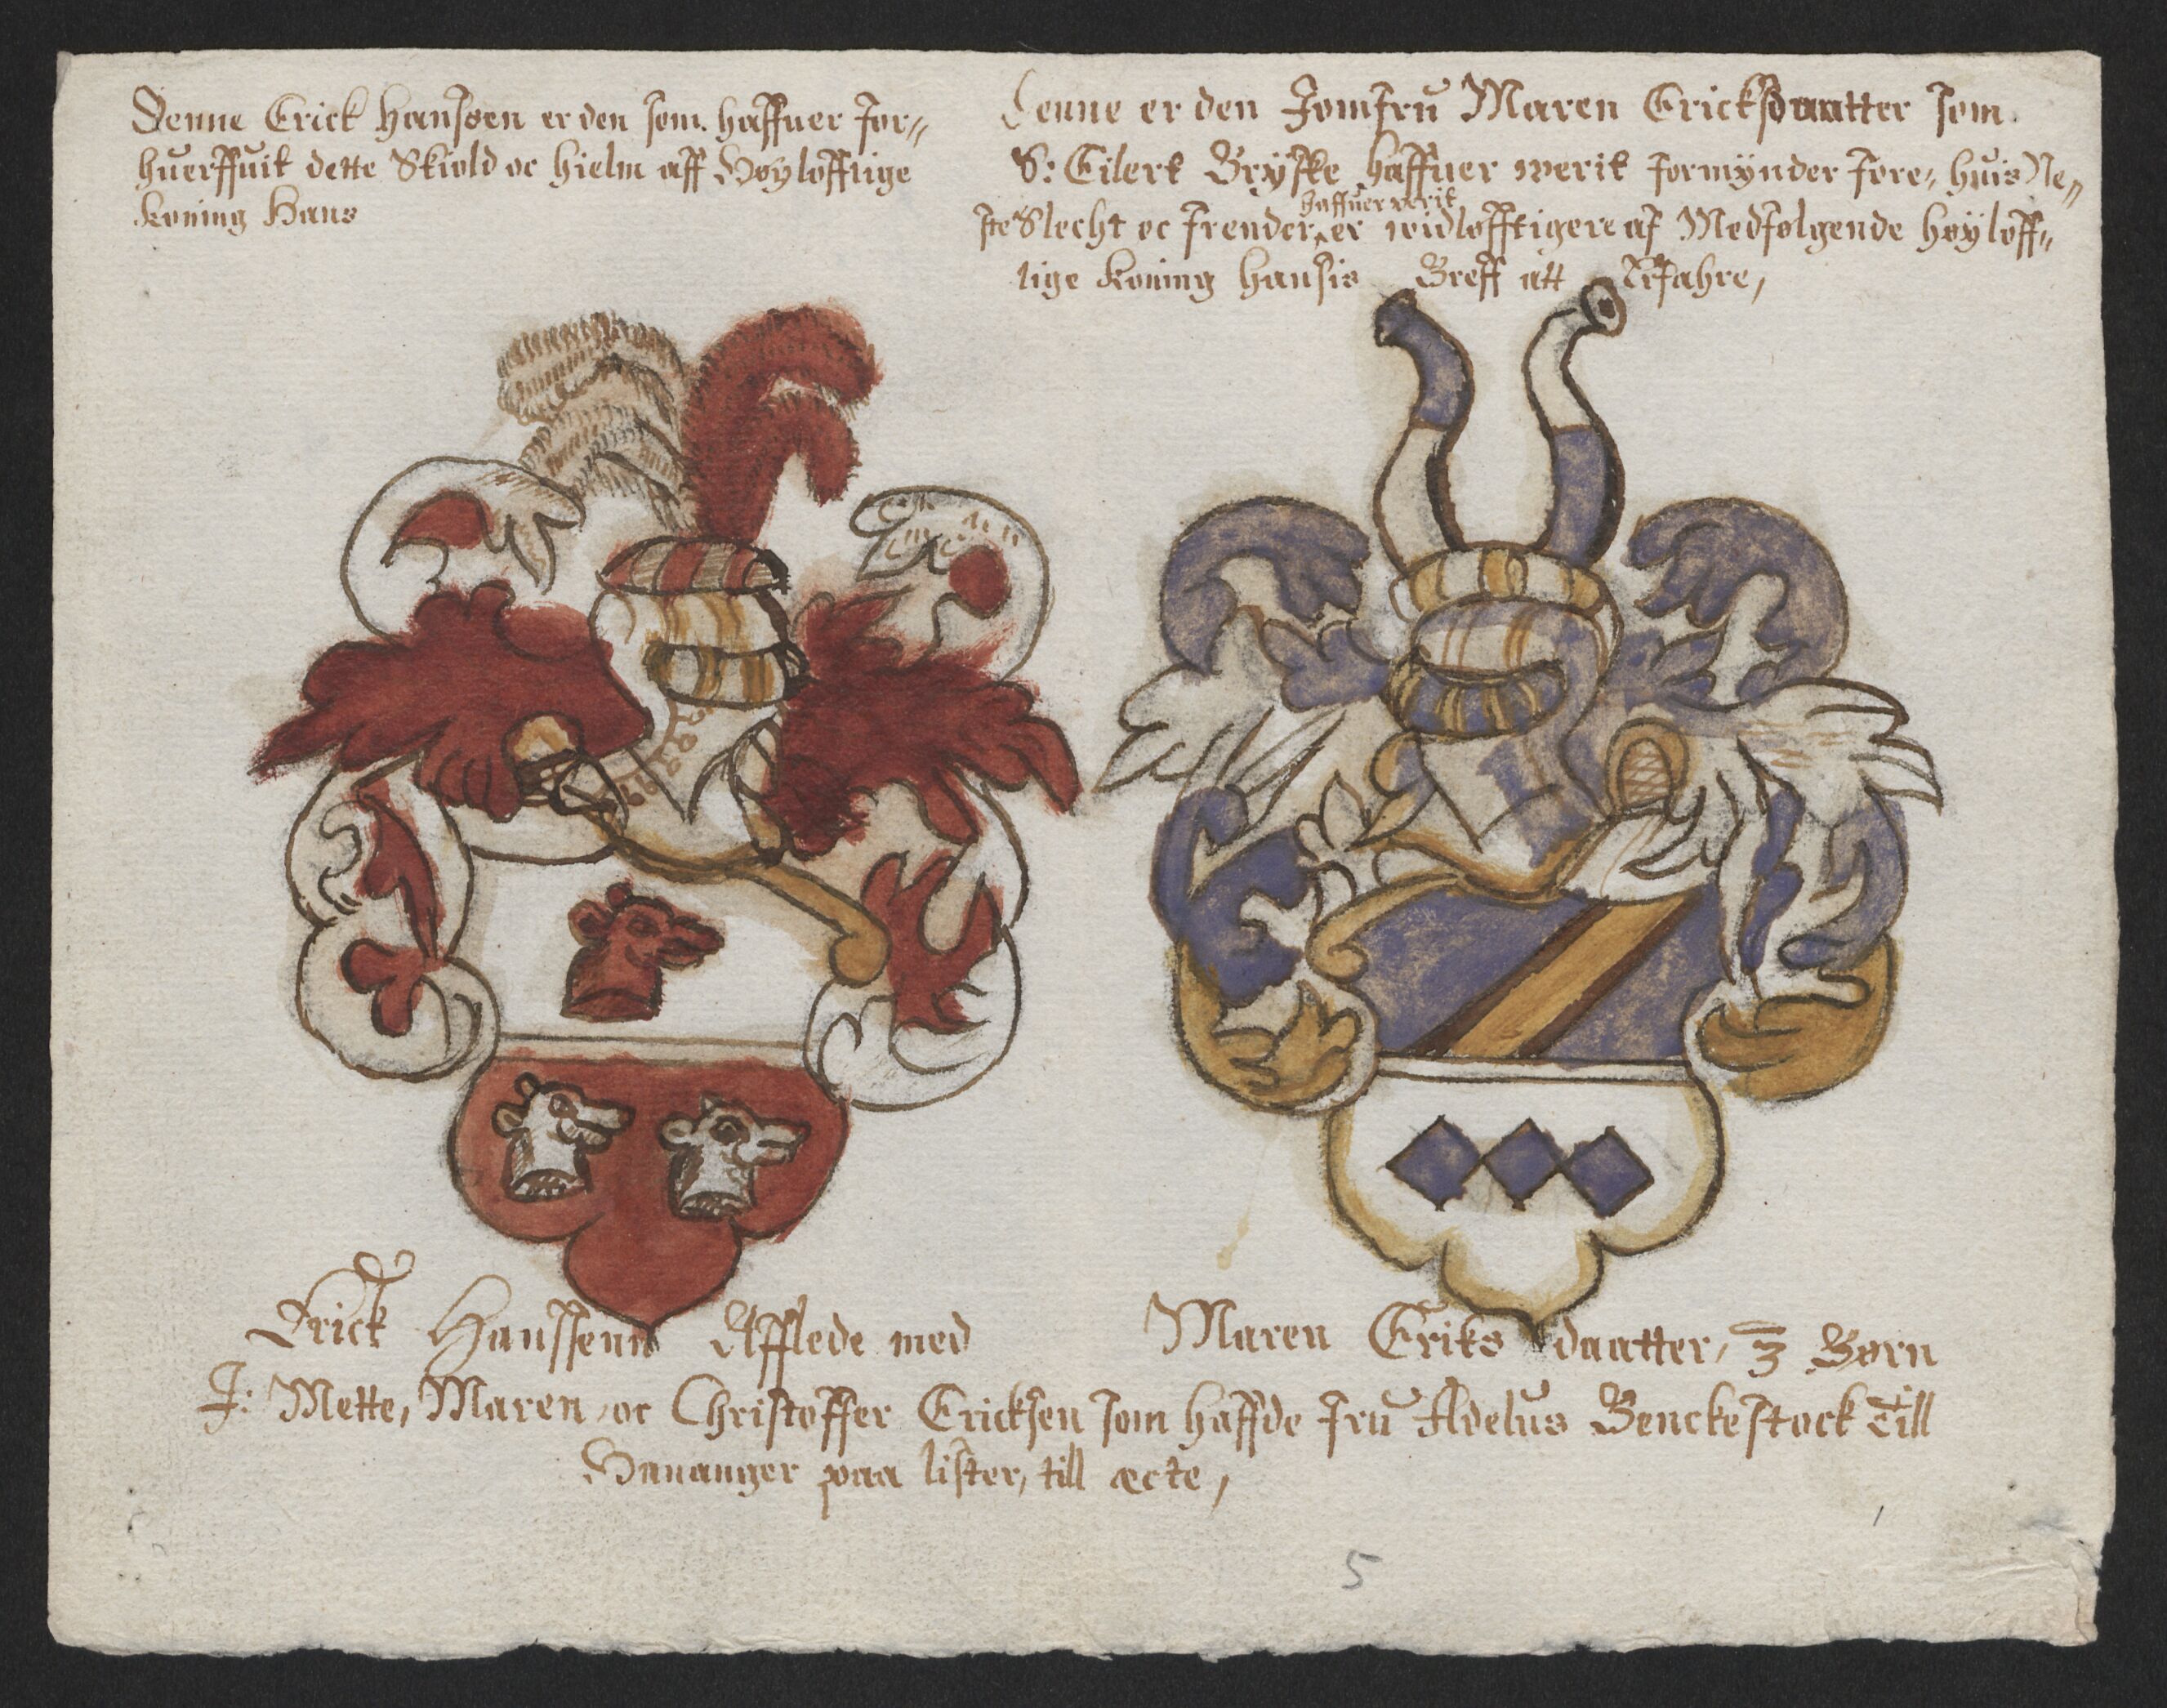 Denne Erick Hanssen er den som haffuer for=
huerffuit dette Skiold oc hielm aff Høylofflige
Koning Hans
Denne er den Jomfru Maren Ericksdaatter som
S: Eilert Bryske haffuer werit formynder fore, huis Ne=
ste Slecht oc frender haffuer werit er widlofftigere af Medfølgende høyloff=
lige Koning Hansis Breff att Erfahre,
Erick Hanssenn Afflede med
Maren Eriks daatter, 3 Børn
J: Mette, Maren, oc Christoffer Ericksen som haffde fru Adelus Benckestock Till
Hananger paa lister, till æcte,
5